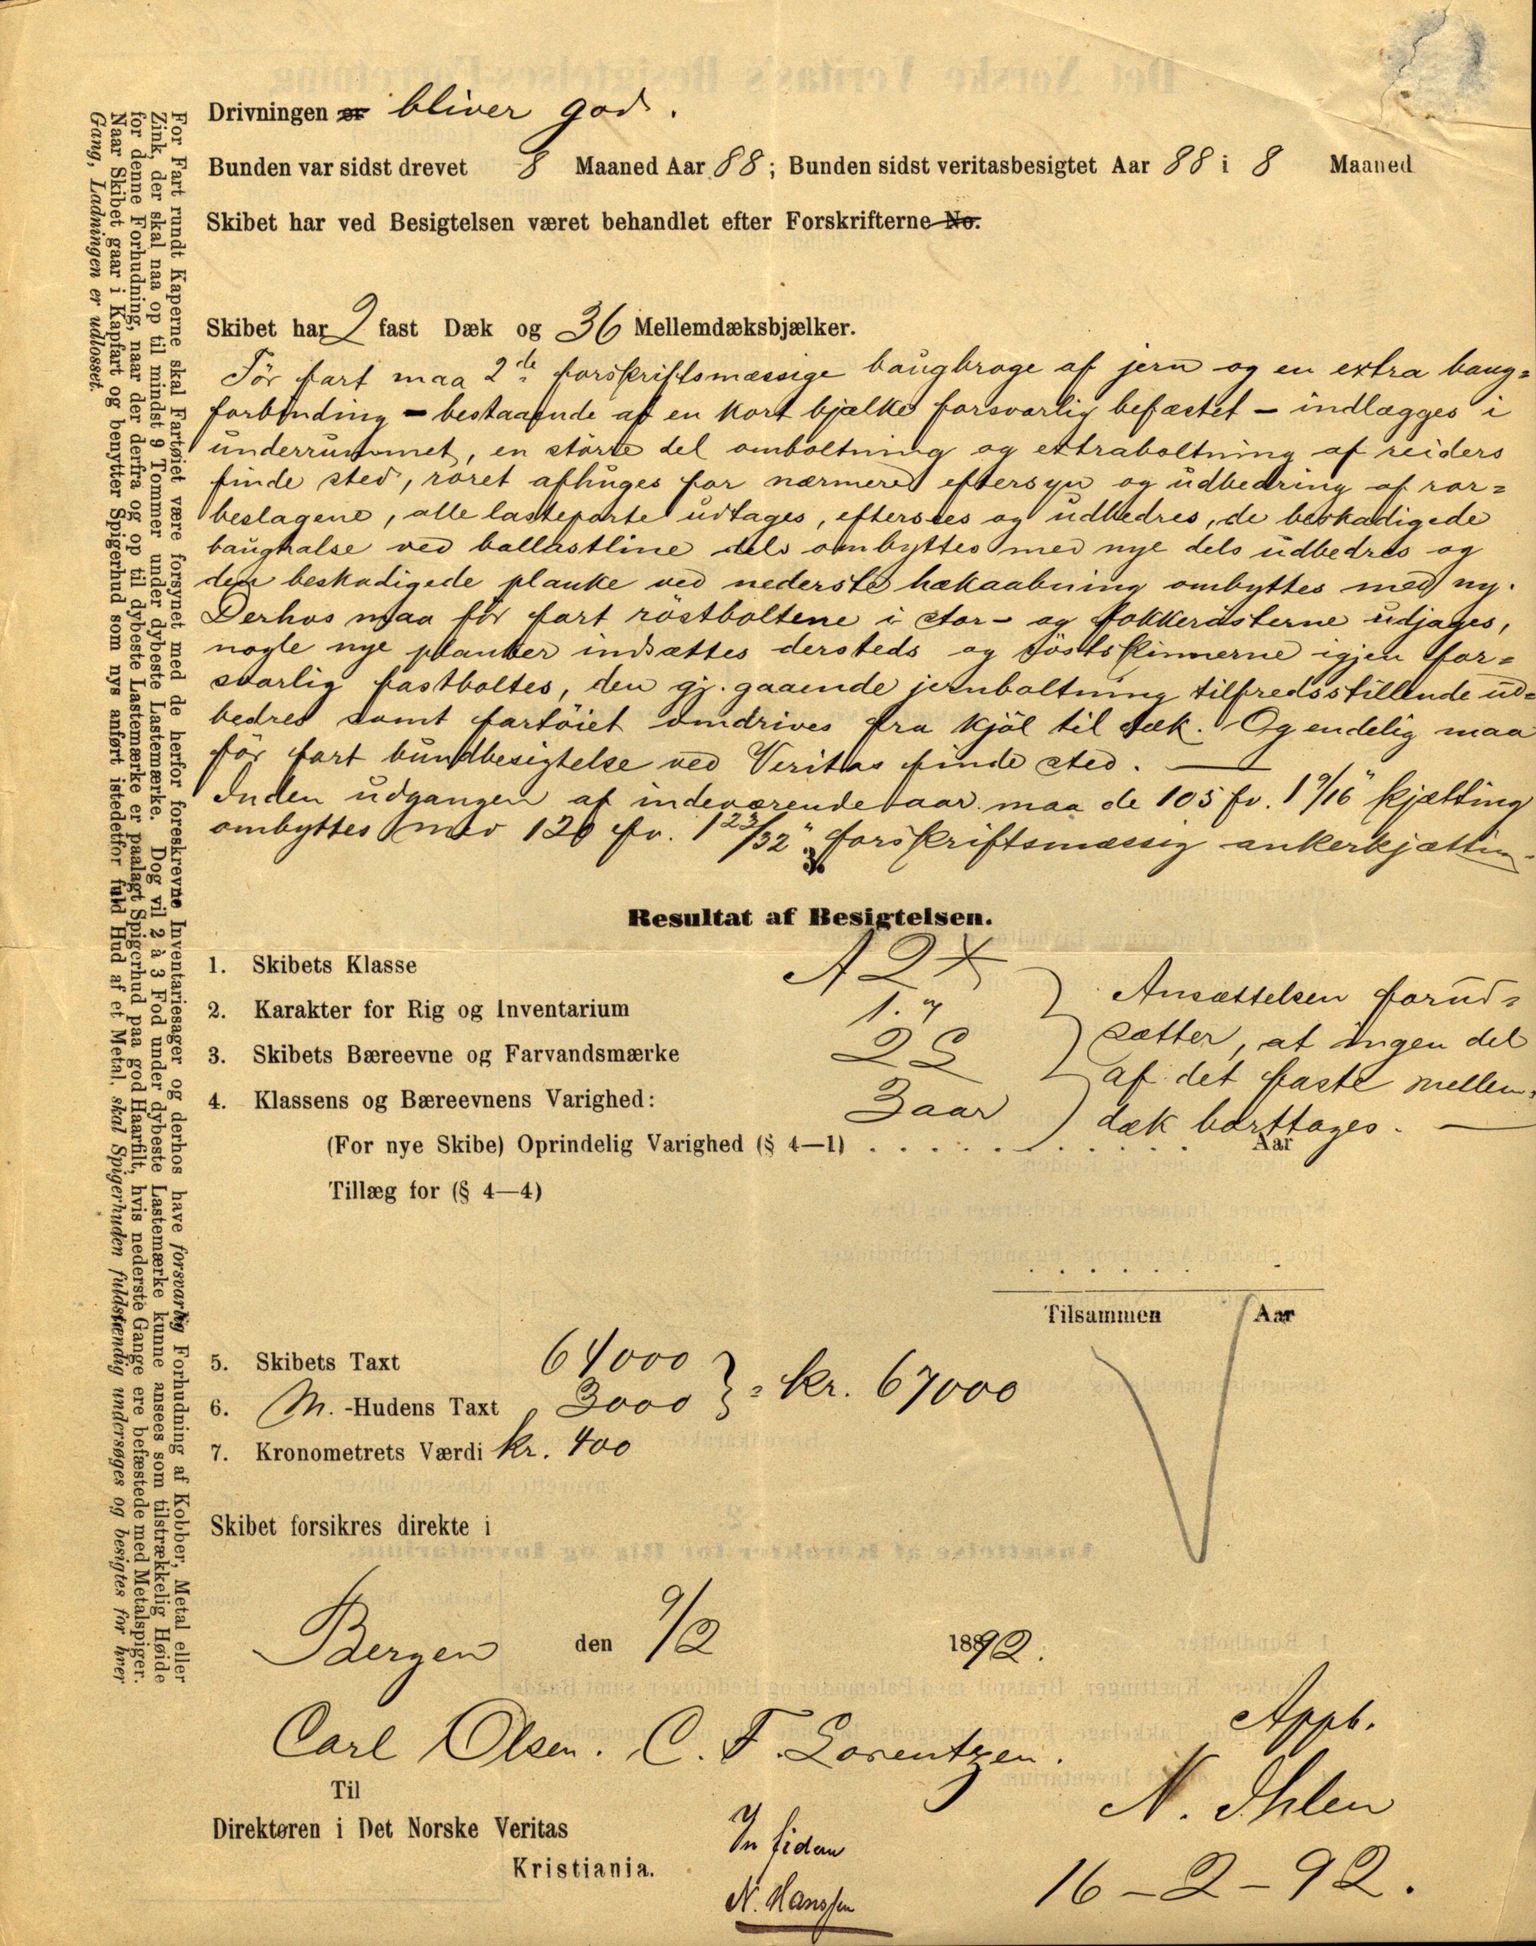 Drivningen er bliver god.
Bunden var sidst drevet 8 Maaned Aar 88; Bunden sidst veritasbesigtet Aar 88 i 8 Maaned
Skibet har ved Besigtelsen været behandlet efter Forskrifterne No.
Skibet har 2 fast Dæk og 36 Mellemdæksbjælker.
Før fart maa 2de forskriftsmæssige baugbroge af jern og en extra baug=
forbinding - bestaaende af en kort bjælke forsvarlig befæstet - indlægges i
underrummet, en större del omboltning og extraboltning af reiders
finde sted, roret afhuges for nærmere eftersyn og udbedring af ror=
beslagene, alle lasteporte udtages, eftersees og udbedres, de beskadigede
baughalse ved ballastline dels ombyttes med nye dels udbedres og
den beskadigede planke ved nederste hækaabning ombyttes med ny.
Derhos maa för fart röstboltene i stor- og fokkerösterne udjages,
nogle nye planker indsættes dersteds og röstskinnerne igjen for=
svarlig fastboltes, den gj. gaaende jernboltning tilfredsstillende ud=
bedres samt fartöiet omdrives fra kjöl til dæk. Og endelig maa
för fart bundbesigtelse ved Veritas finde sted.
Inden udgangen af indeværende aar maa de 105 fv. 1 9/16" kjætting
ombyttes med 120 fv. 1 23/32" forskriftsmæssig ankerkjætting.
3.
Resultat af Besigtelsen.
1. Skibets Klasse A2*
2. Karakter for Rig og Inventarium 1.
3. Skibets Bæreevne og Farvandsmærke 2 S
4. Klassens og Bæreevnens Varighed: 3 aar
Ansættelsen forud=
sætter, at ingen del
af det faste mellem=
dæk borttages.
(For nye Skibe) Oprindelig Varighed (§ 4—1) . . . . . . . . . . . Aar
Tillæg for (§ 4—4)
. . . . . . .
Tilsammen Aar
5. Skibets Taxt 64000
6. M.-Hudens Taxt 3000 } = kr. 67000
7. Kronometrets Værdi kr. 400
Skibet forsikres direkte i
Bergen den 9/2 1892.
Carl Olsen. C. F. Lorentzen.
Appb.
N. Ihlen
16-2-92.
Til
Direktøren i Det Norske Veritas
Kristiania.
In fidem
N. Hanssen
For Fart rundt Kaperne skal Fartøiet være forsynet med de herfor foreskrevne Inventariesager og derhos have forsvarlig Forhudning af Kobber, Metal eller
Zink, der skal naa op til mindst 9 Tommer under dybeste Lastemærke. Dog vil 2 à 3 Fod under dybeste Lastemærke kunne ansees som tilstrækkelig Høide
for denne Forhudning, naar der derfra og op til dybeste Lastemærke er paalagt Spigerhud paa god Haarfilt, hvis nederste Gange ere befæstede med Metalspiger.
Naar Skibet gaar i Kapfart og benytter Spigerhud som nys anført istedetfor fuld Hud af et Metal, skal Spigerhuden fuldstændig undersøges og besigtes for hver
Gang, Ladningen er udlosset.